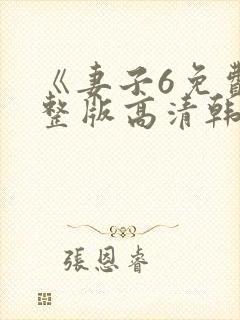 《妻子6免費
整版高清韩
張恩睿